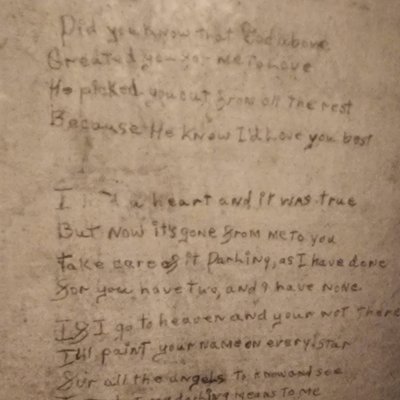 Did you know that God above
Created you for me to love
He picked you out from all the rest
Because He know I'd Love you best
I had a heart and it was true
But now it's gone from me to you
Take care of it Darling, as I have done
for you have two, and I have none.
If I go to heaven and your not there
I'll paint your name on every star
for all the angels to know and see
darling means to me